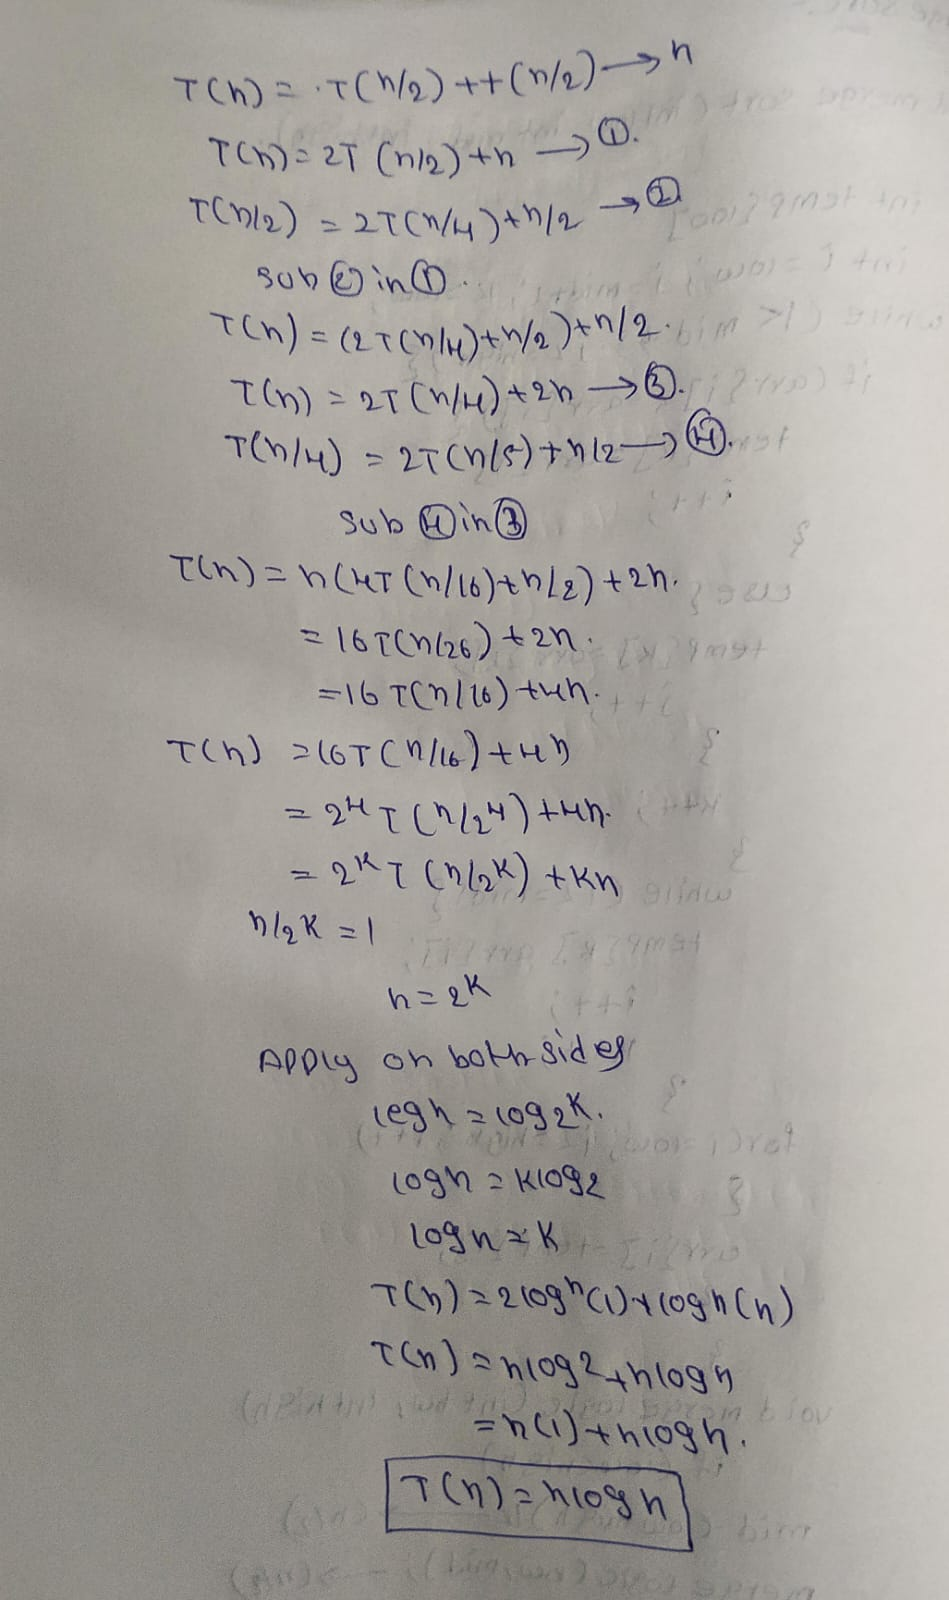 T(n) = T(n/2) ++(n/2) → n
T(n) = 2T (n/2) +n → ①.
T(n/2) = 2T(n/4)+n/2 → ②
sub ② in ①.
T(n) = (2T(n/4)+n/2)+n/2.
T(n) = 2T (n/4) +2n → ③.
T(n/4) = 2T(n/8)+n/2 → ④.
sub ④ in ③
T(n) = n(4T(n/16)+n/2)+2n.
= 16T(n/26) +2n.
=16 T(n/16) +4n.
T(n) =16T(n/16)+4n
= 2⁴T(n/2⁴)+4n.
= 2ᴷT(n/2ᴷ) +Kn
n/2K =1
n=2ᴷ
APPly on both sides
logn = log2ᴷ.
logn = Klog2
logn = K
T(n) =2logⁿ(1)+logn(n)
T(n) = nlog2+nlogn
=n(1)+nlogn.
T(n)=nlogn